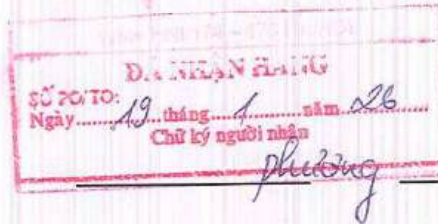 ĐÃ NHẬN HÀNG
SỐ PO/TO:
Ngày.......19...tháng.....1......năm...26.......
Chữ ký người nhận
phương